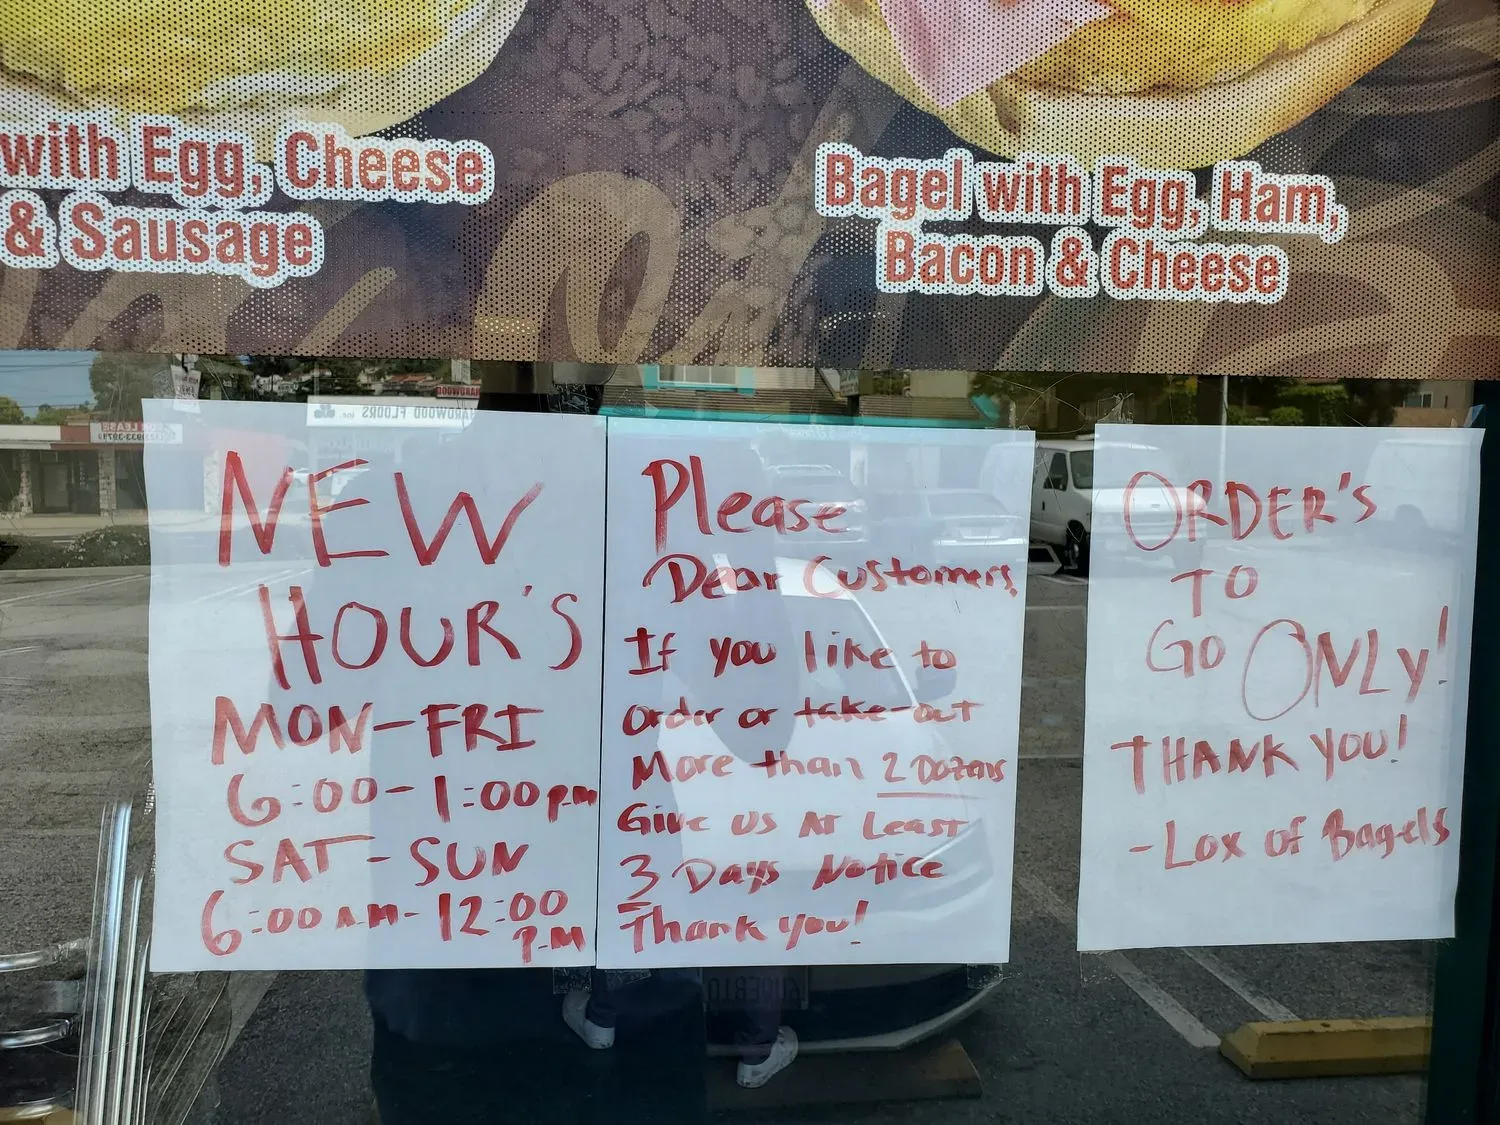 with Egg, Cheese
& Sausage
Bagel with Egg, Ham,
Bacon & Cheese
NEW
HOUR'S
MON-FRI
6:00-1:00 P.M
SAT-SUN
6:00 A.M-12:00
P.M
Please
Dear Customers,
If you like to
order or take-out
More than 2 Dozens
Give us At Least
3 Days Notice
Thank you!
ORDER'S
TO
GO ONLY!
THANK YOU!
-Lox of Bagels
HARDWOOD
HARDWOOD FLOORS Inc.
FOR LEASE